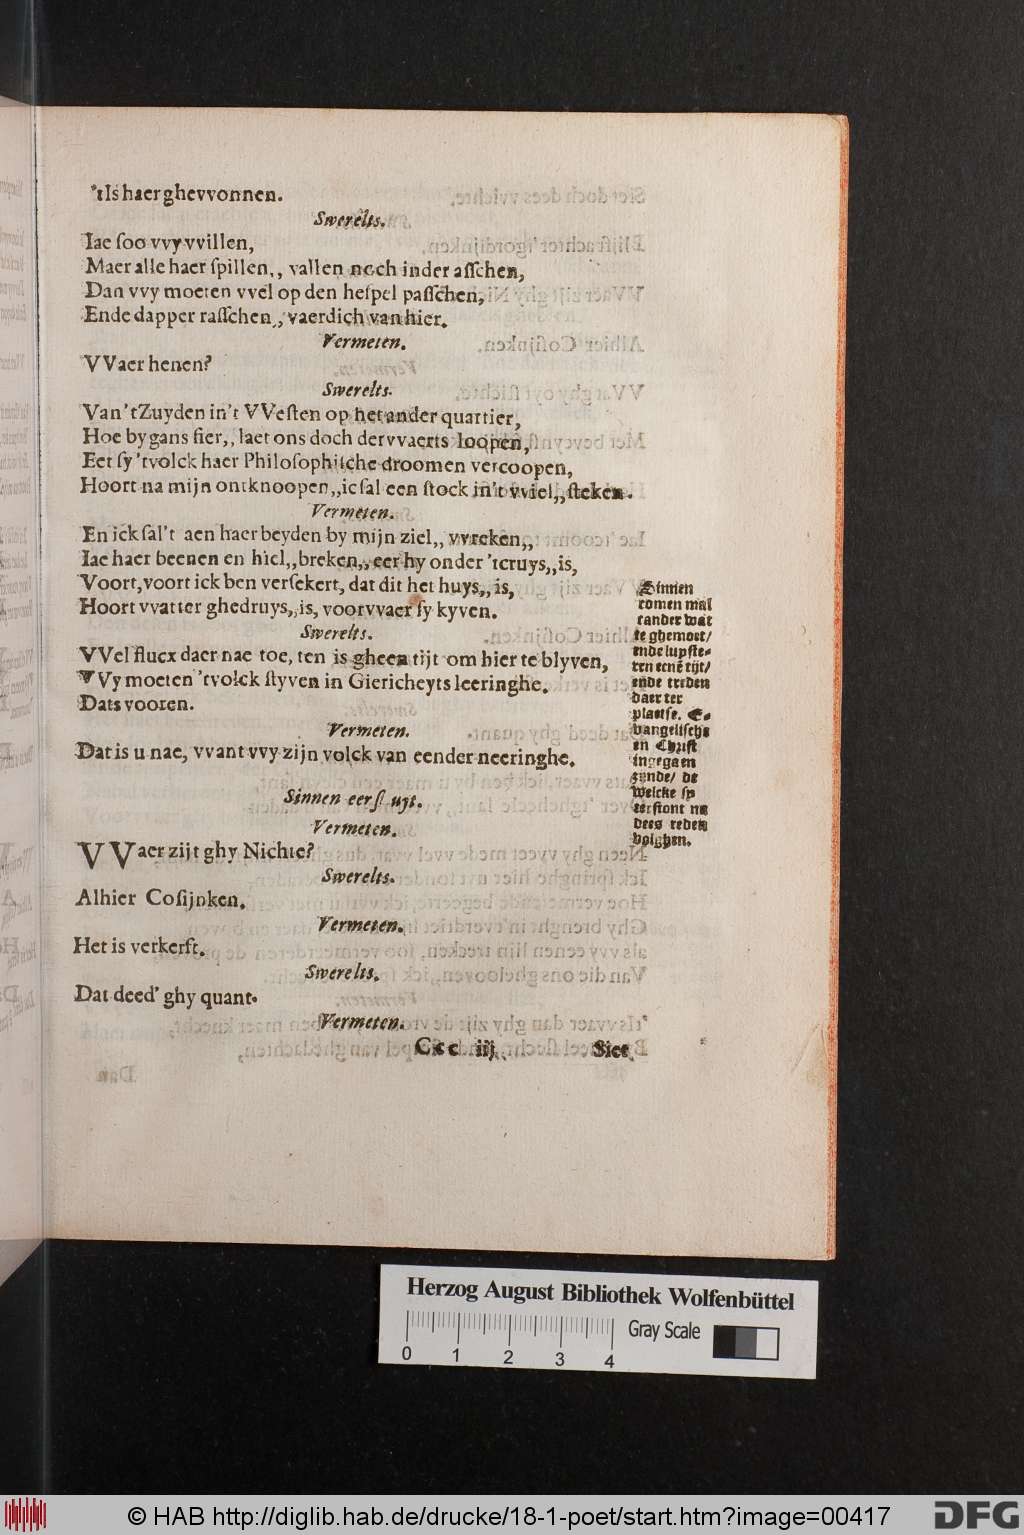 'tIs haer ghevvonnen.
Swerelts.
Iae soo vvy vvillen,
Maer alle haer spillen,, vallen noch inder asschen,
Dan vvy moeten vvel op den hespel passchen,
Ende dapper rasschen,, vaerdich van hier.
Vermeten.
VVaer henen?
Swerelts.
Van 't Zuyden in't VVesten op het ander quartier,
Hoe bygans fier,, laet ons doch dervvaerts loopen,
Eer sy 'tvolck haer Philosophische droomen vercoopen,
Hoort na mijn ontknoopen,, ic sal een stock in't vviel,, steken.
Vermeten.
En ick sal't aen haer beyden by mijn ziel,, vvreken,,
Iae haer beenen en hiel,, breken,, eer hy onder 'tcruys,, is,
Voort, voort ick ben versekert, dat dit het huys,, is,
Hoort vvatter ghedruys,, is, voorvvaer sy kyven.
Swerelts.
VVel flucx daer nae toe, ten is gheen tijt om hier te blyven,
VVy moeten 'tvolck styven in Giericheyts leeringhe.
Dats vooren.
Vermeten.
Dat is u nae, vvant vvy zijn volck van eender neeringhe.
Sinnen eerst uyt.
Vermeten.
VVaer zijt ghy Nichte?
Swerelts.
Alhier Cosijnken.
Vermeten.
Het is verkerft.
Swerelts.
Dat deed' ghy quant.
Vermeten.
Ccc iij
Siet
Sinnen
comen mal
cander wat
te ghemoet/
ende lupste-
ren eenē tijt/
ende treden
daer ter
plaetse. E-
vangelische
en Christ
ingegaen
zynde/ de
welcke sp
eerstont na
dees reden
volghen.
Herzog August Bibliothek Wolfenbüttel
Gray Scale
0 1 2 3 4
© HAB http://diglib.hab.de/drucke/18-1-poet/start.htm?image=00417
DFG